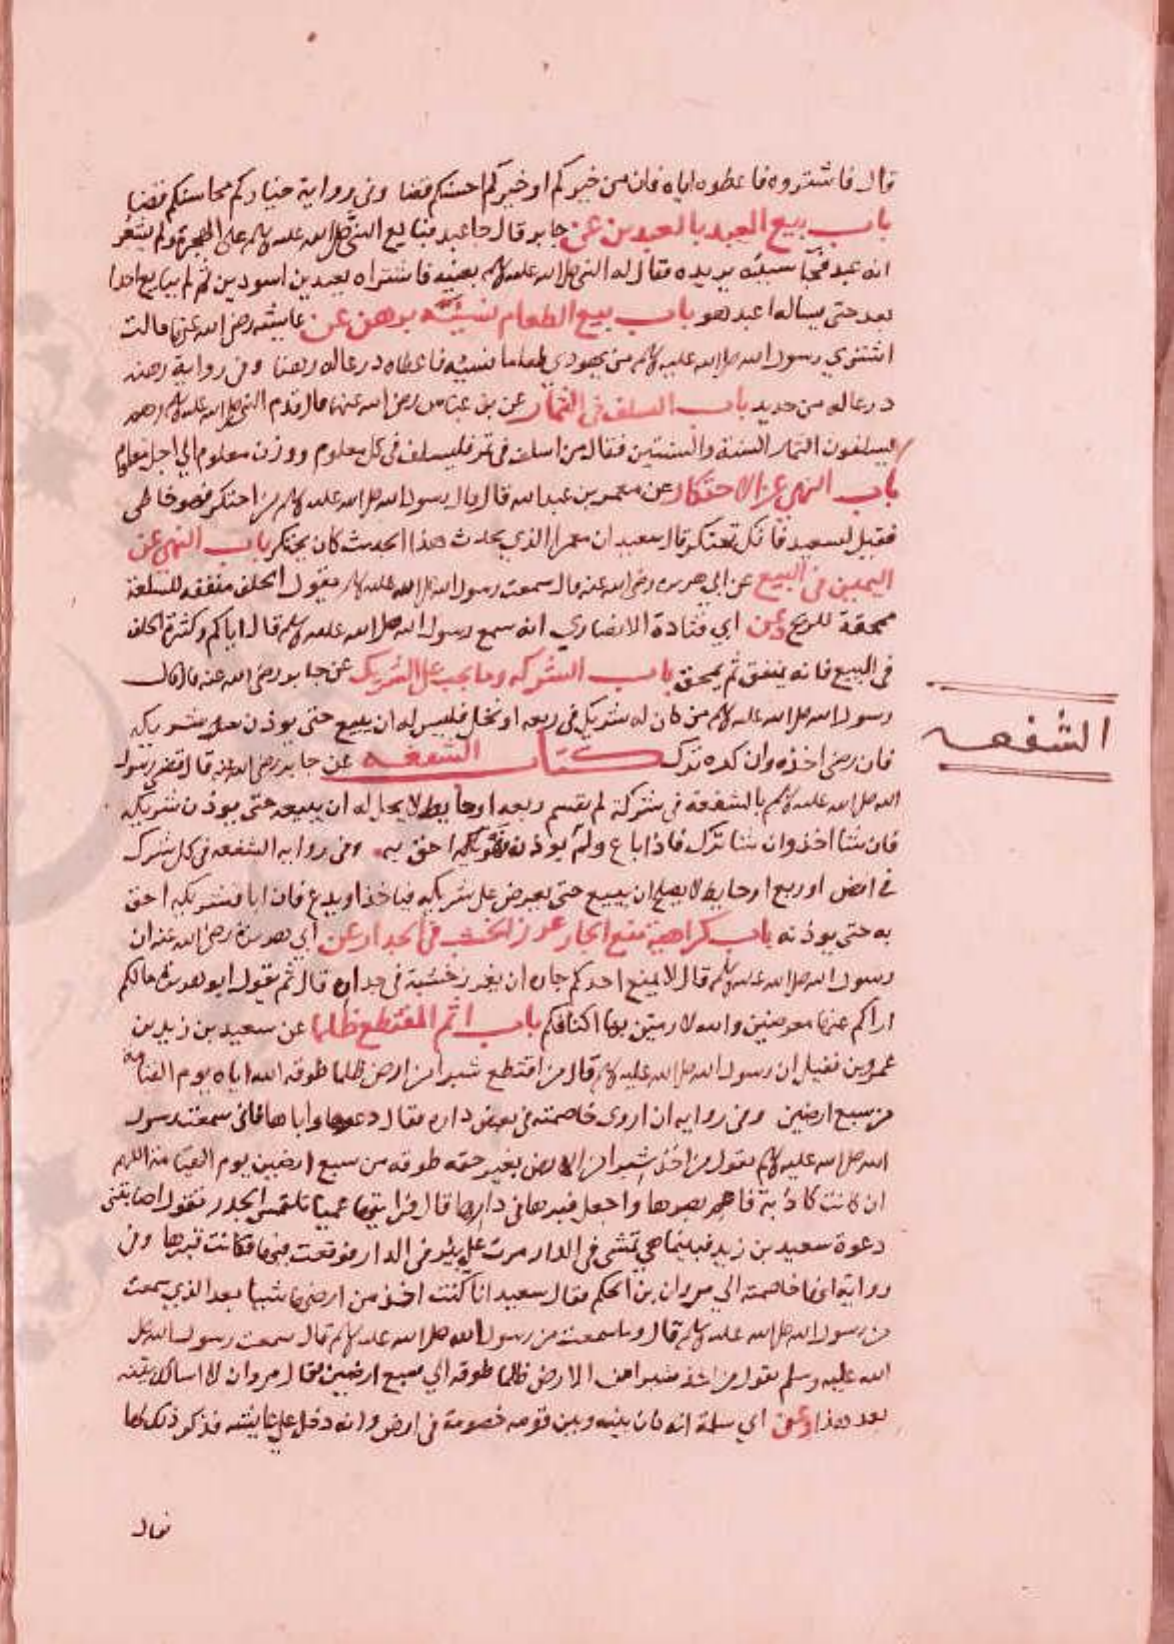 قال فاشتروه فاعطوه اياه فان من خيركم او خيركم احسنكم قضا وفي رواية خياركم محاسنكم قضا
باب بيع العبد بالعبدين عن جابر قال جا عبد فبايع النبي صلى الله عليه وسلم على الهجرة ولم يشعر
انه عبد فجا سيده يريده فقال له النبي صلى الله عليه وسلم بعنيه فاشتراه بعبدين اسودين ثم لم يبايع احدا
بعد حتى يساله اعبد هو باب بيع الطعام نسيئه برهن عن عايشه رضي الله عنها قالت
اشترى رسول الله صلى الله عليه وسلم من يهودي طعاما نسيئه فاعطاه درعا له رهنا وفي رواية رهنه
درعا له من حديد باب السلف في الثمار عن بن عباس رضي الله عنهما قال قدم النبي صلى الله عليه وسلم وهم
يسلفون الثمار السنة والسنتين فقال من اسلف في تمر فليسلف في كل معلوم ووزن معلوم الي اجل معلوم
باب النهي عن الاحتكار عن معمر بن عبد الله قال قال رسول الله صلى الله عليه وسلم من احتكر فهو خاطي
فقيل لسعيد فانك تحتكر قال سعيد ان معمرا الذي يحدث هذا الحديث كان يحتكر باب النهي عن
اليمين في البيع عن ابي هريره رضي الله عنه قال سمعت رسول الله صلى الله عليه وسلم يقول الحلف منفقه للسلعة
ممحقة للربح وعن ابي قتادة الانصاري انه سمع رسول الله صلى الله عليه وسلم قال اياكم وكثرة الحلف
في البيع فانه ينفق ثم يمحق باب الشركه وما يجب على الشريك عن جابر رضي الله عنه قال قال
رسول الله صلى الله عليه وسلم من كان له شريك في ربعه او نخل فليس له ان يبيع حتى يوذن شريكه
فان رضي اخذه وان كره ترك كتاب الشفعه عن جابر رضي الله عنه قال قضى رسول
الله صلى الله عليه وسلم بالشفعة في شركة لم تقسم ربعه او حايط لا يحل له ان يبيعه حتى يوذن شريكه
فان شا اخذ وان شا ترك فاذا باع ولم يوذن احق به وفي روايه الشفعه في كل شرك
في ارض او ربع او حايط لا يصلح ان يبيع حتى يعرض على شريكه فياخذ او يدع فان ابا فشريكه احق
به حتى يوذنه باب كراهية منع الجار غرز الخشب في الجدار عن ابي هريرة رضي الله عنه ان
رسول الله صلى الله عليه وسلم قال لا يمنع احدكم جاره ان يغرز خشبة في جداره قال ثم يقول ابو هريرة مالكم
اراكم عنها معرضين والله لارمين بها اكتافكم باب اثم المقتطع ظلما عن سعيد بن زيد بن
عمرو بن نفيل ان رسول الله صلى الله عليه وسلم قال من اقتطع شبرا من ارض ظلما طوقه الله اياه يوم القيامة
من سبع ارضين وفي روايه ان اروى خاصمته في بعض داره فقال دعوها واياها فاني سمعت رسول
الله صلى الله عليه وسلم يقول من اخذ شبرا من الارض بغير حقه طوقه من سبع ارضين يوم القيامة اللهم
ان كانت كاذبة فاعم بصرها واجعل قبرها في دارها قال فرايتها عميا تلتمس الجدر تقول اصابتني
دعوة سعيد بن زيد فبينما هي تمشي في الدار مرت على بئر في الدار فوقعت فيها فكانت قبرها وفي
رواية انها خاصمته الي مروان بن الحكم فقال سعيد انا كنت اخذ من ارضها شيا بعد الذي سمعت
من رسول الله صلى الله عليه وسلم قال وما سمعت من رسول الله صلى الله عليه وسلم قال سمعت رسول الله صلى
الله عليه وسلم يقول من اخذ شبرا من الارض ظلما طوقه الي سبع ارضين فقال مروان لا اسالك بينه
بعد هذا وعن ابي سلمة انه كان بينه وبين قومه خصومة في ارض وانه دخل على عايشه فذكر ذلك لها
فقال
الشفعه